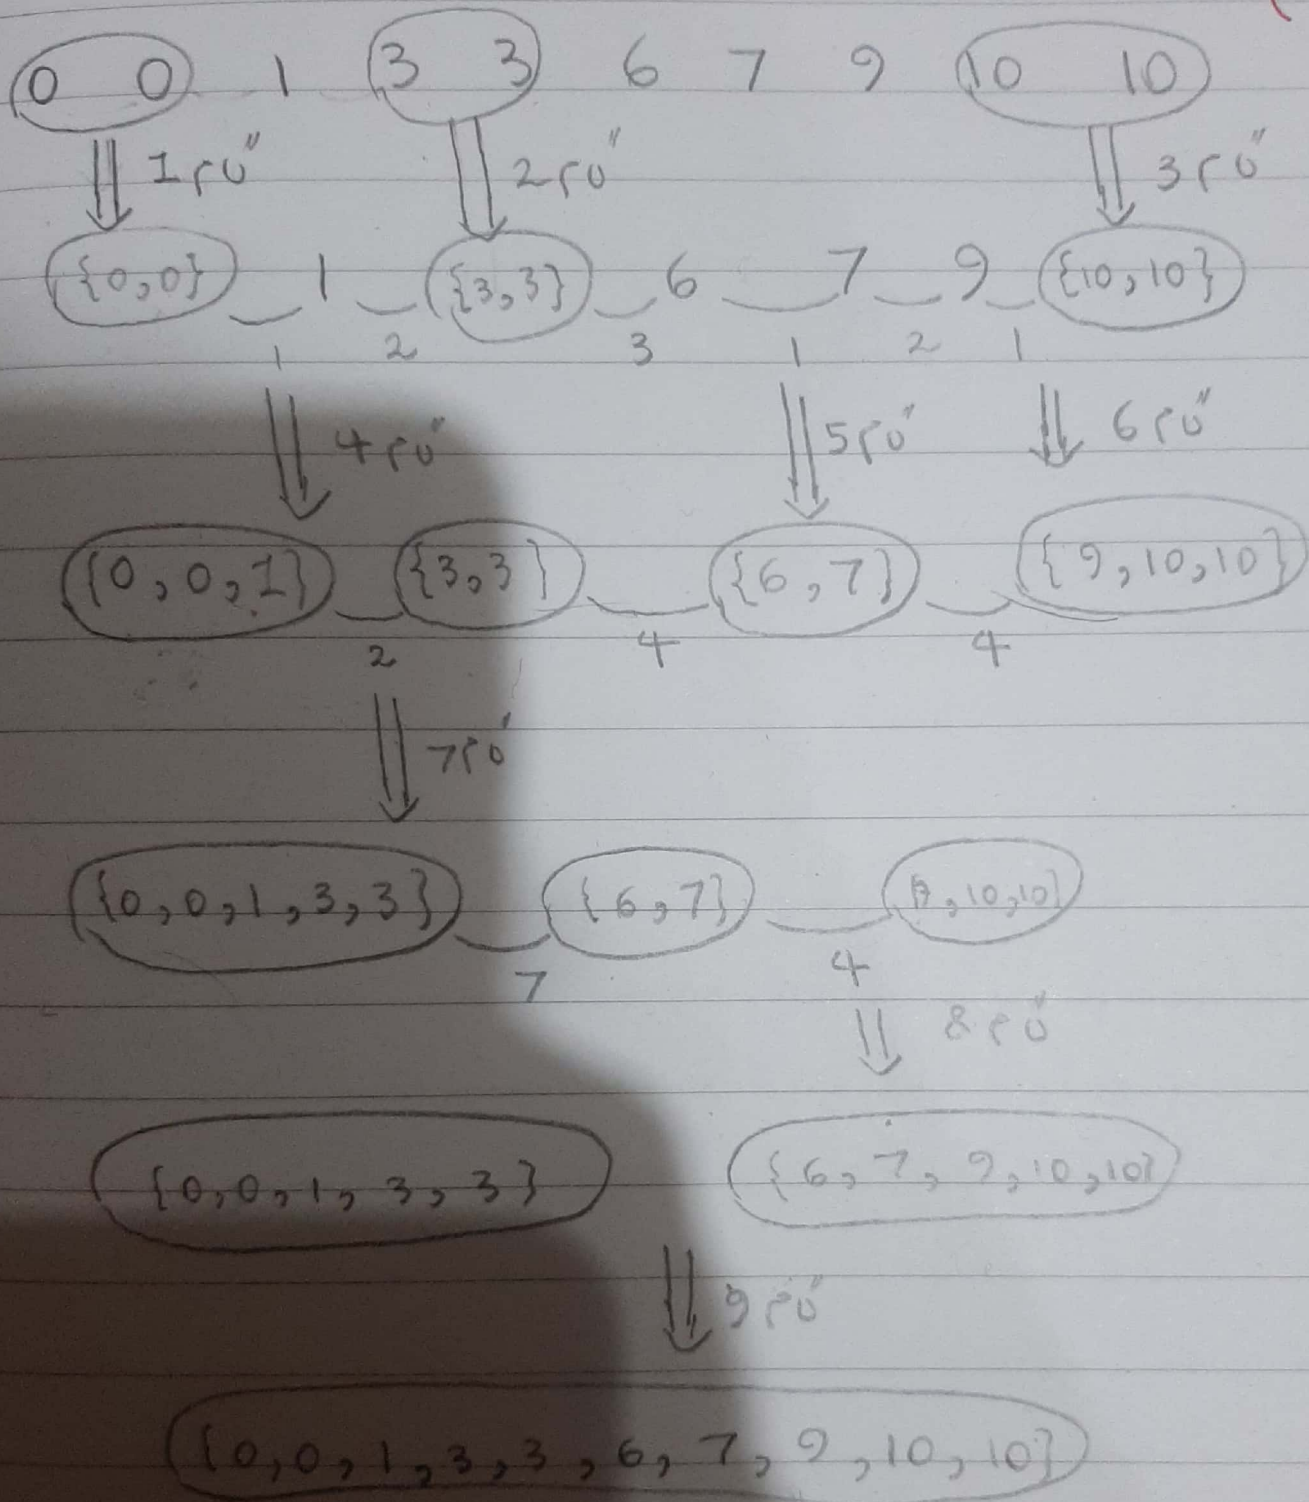 0 0 1 3 3 6 7 9 10 10
1 2 3
{0,0} 1 {3,3} 6 7 9 {10,10}
1 2 3 1 2 1
4 5 6
{0,0,1} {3,3} {6,7} {9,10,10}
2 4 4
7
{0,0,1,3,3} {6,7} 9,10,10}
7 4
8
{0,0,1,3,3} {6,7,9,10,10}
9
{0,0,1,3,3,6,7,9,10,10}